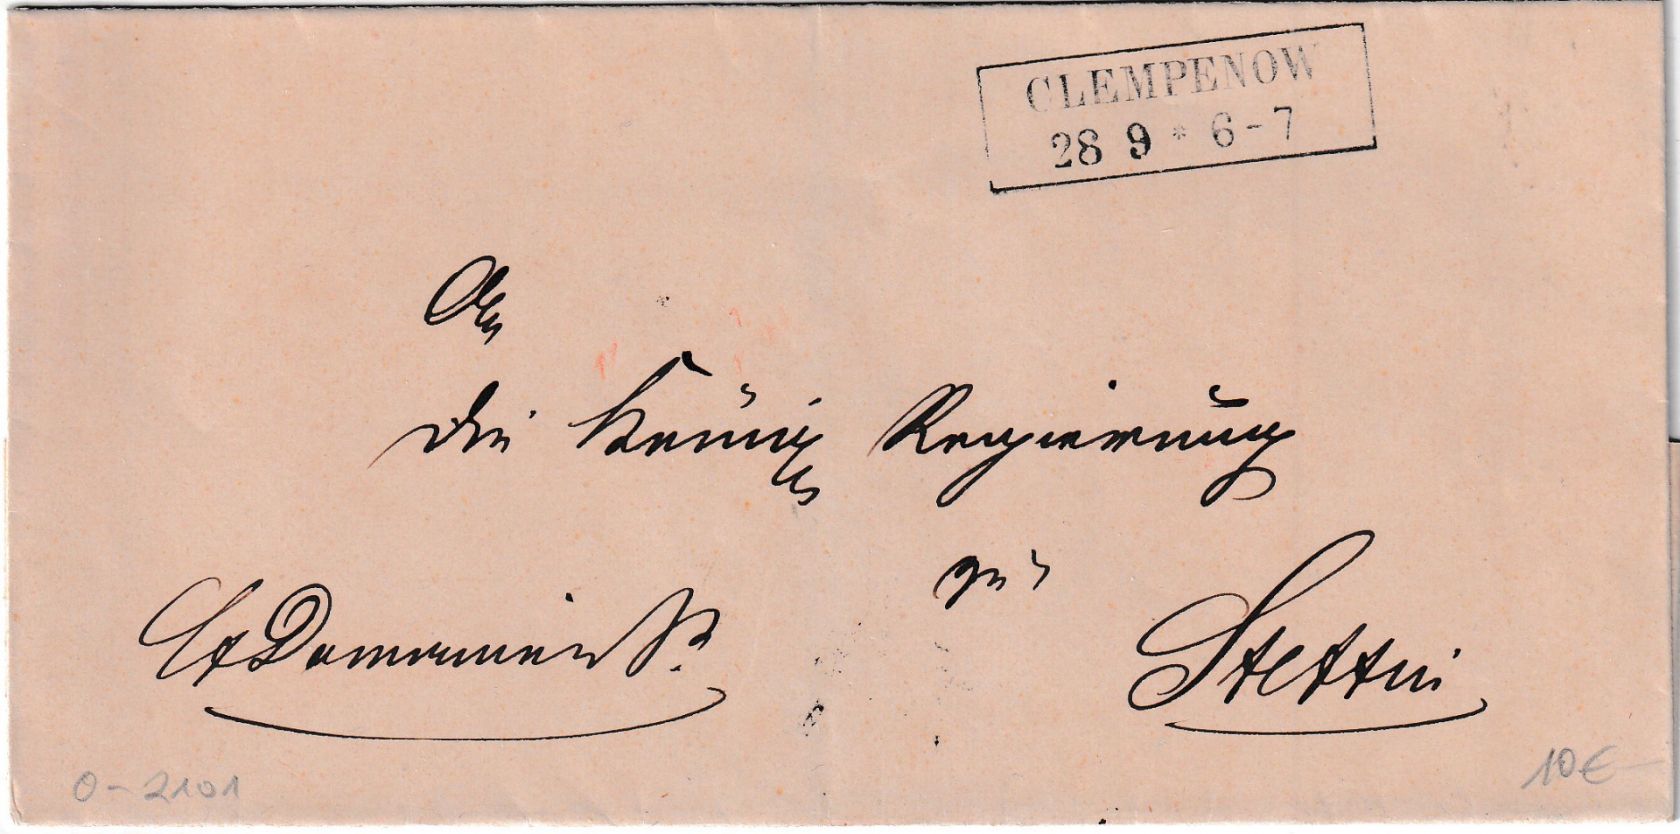 CLEMPENOW
28 9 * 6-7
An
die Königl
Regierung
zu
Stettin
Domainen
0-2101
10€-